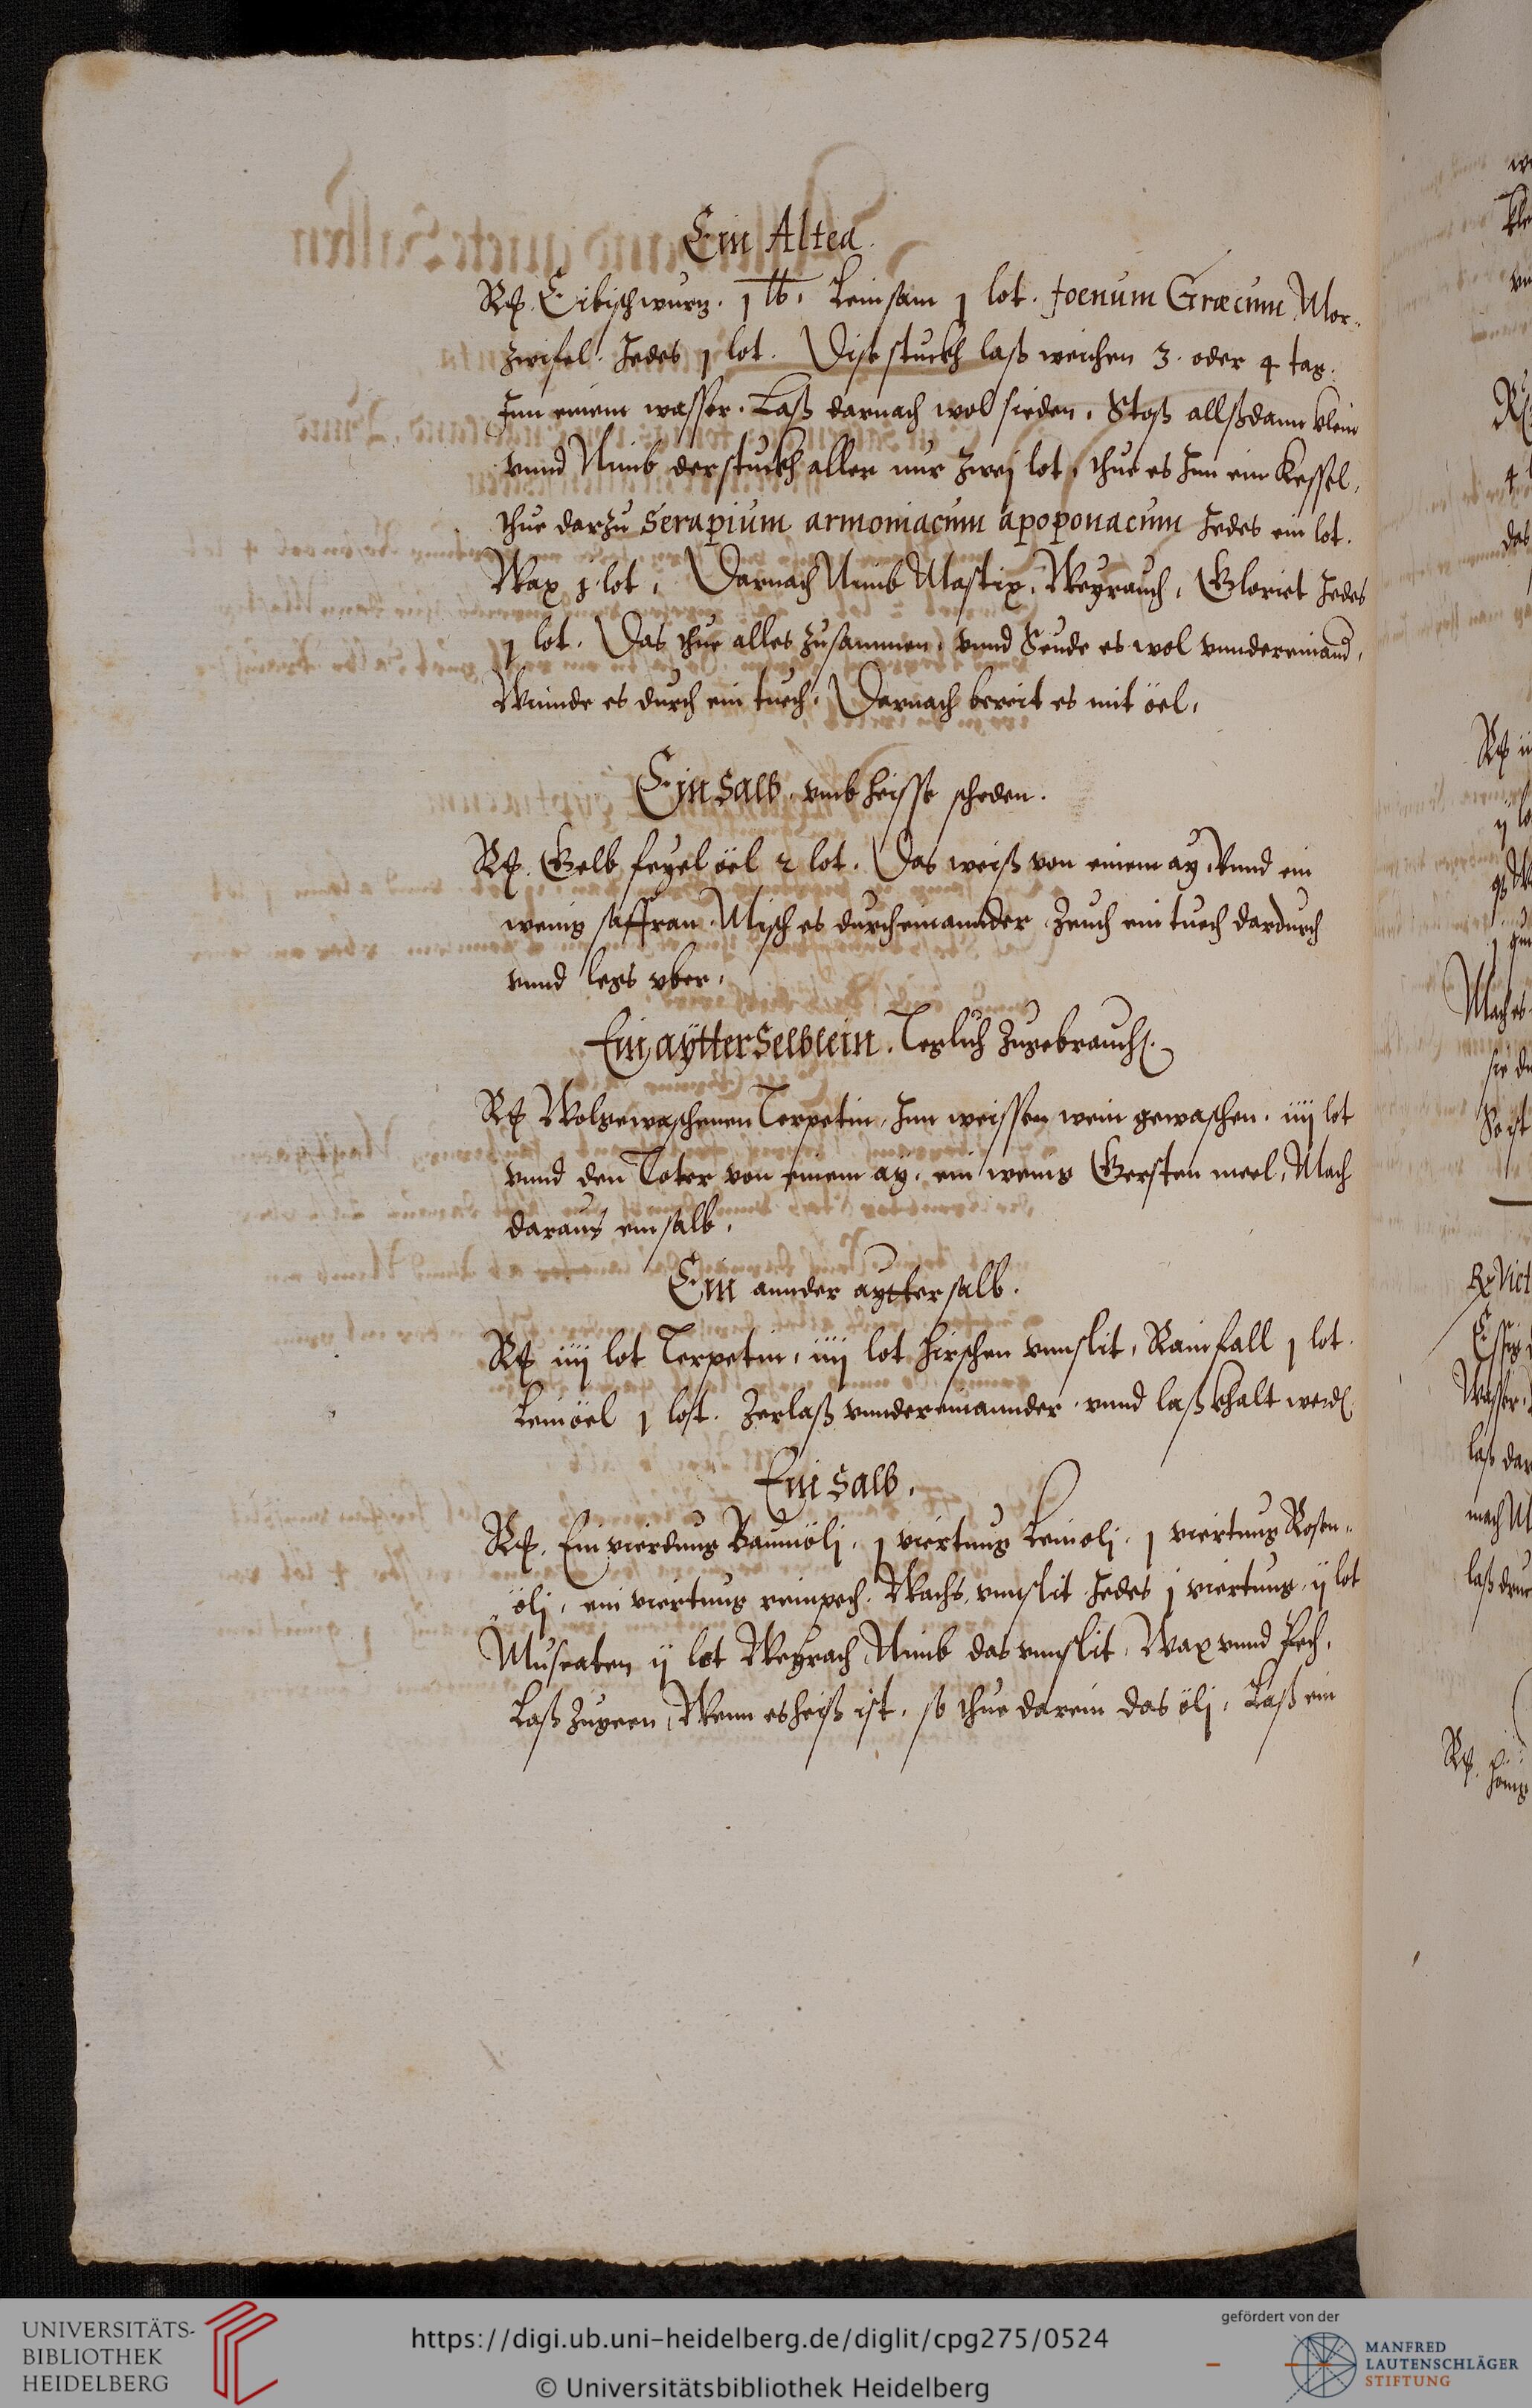 Ein Altea.
Rp. Eibischwurz. j lb. Leinsam j lot. foenum Græcum Mör„
zwifel. Jedes j lot. Dise stuckh laß weichen 3. oder 4 tag.
Jnn einem wasser. Laß darnach wol sieden. Stoß allßdann klein
vnnd Nimb der stuckh aller nur zwej lot, thue es Jnn ein Kessel,
thue darzu Serapium armoniacum apoponacum Jedes ein lot.
Wax j lot. Darnach Nimb Mastix, Weyrauch, Gloriet Jedes
j lot. Das thue alles zusammen, vnnd Seude es wol vnndereinand,
Winnde es durch ein tuech. Darnach bereit es mit öel.
Ein Salb. vmb heisse scheden.
Rp. Gelb feyel öel 2 lot. Das weiß von einem ay, vnnd ein
wenig saffran. Misch es durcheinannder Zeuch ein tuech dardurch
vnnd legs vber.
Ein aÿtter Selblein. Teglich zugebrauch.
Rp Wolgewaschenen Terpetin, Jnn weissen wein gewaschen. iiij lot
vnnd den Toter von einem aÿ. ein wenig Gersten meel, Mach
daraus ein salb.
Ein annder aytter salb.
Rp iiij lot Terpetin, iiij lot hirschen vnnslit, Rainfall j lot.
Leinöel j lot. Zerlaß vnndereinannder vnnd laß khalt werd.
Ein Salb.
Rp. Ein vierdung Baumölj. j viertung Leinolj. j viertung Rosen„
„ölj, ein viertung reinpech. Wachs, vnnslit Jedes j viertung. ij lot
Muscaten ij lot Weyrach Nimb das vnnslit, Wax vnnd Pech,
Laß zugeen, Wenn es heiß ist, so thue darein das ölj. Laß ein
UNIVERSITÄTS-
BIBLIOTHEK
HEIDELBERG
https://digi.ub.uni-heidelberg.de/diglit/cpg275/0524
© Universitätsbibliothek Heidelberg
gefördert von der
MANFRED
LAUTENSCHLÄGER
STIFTUNG